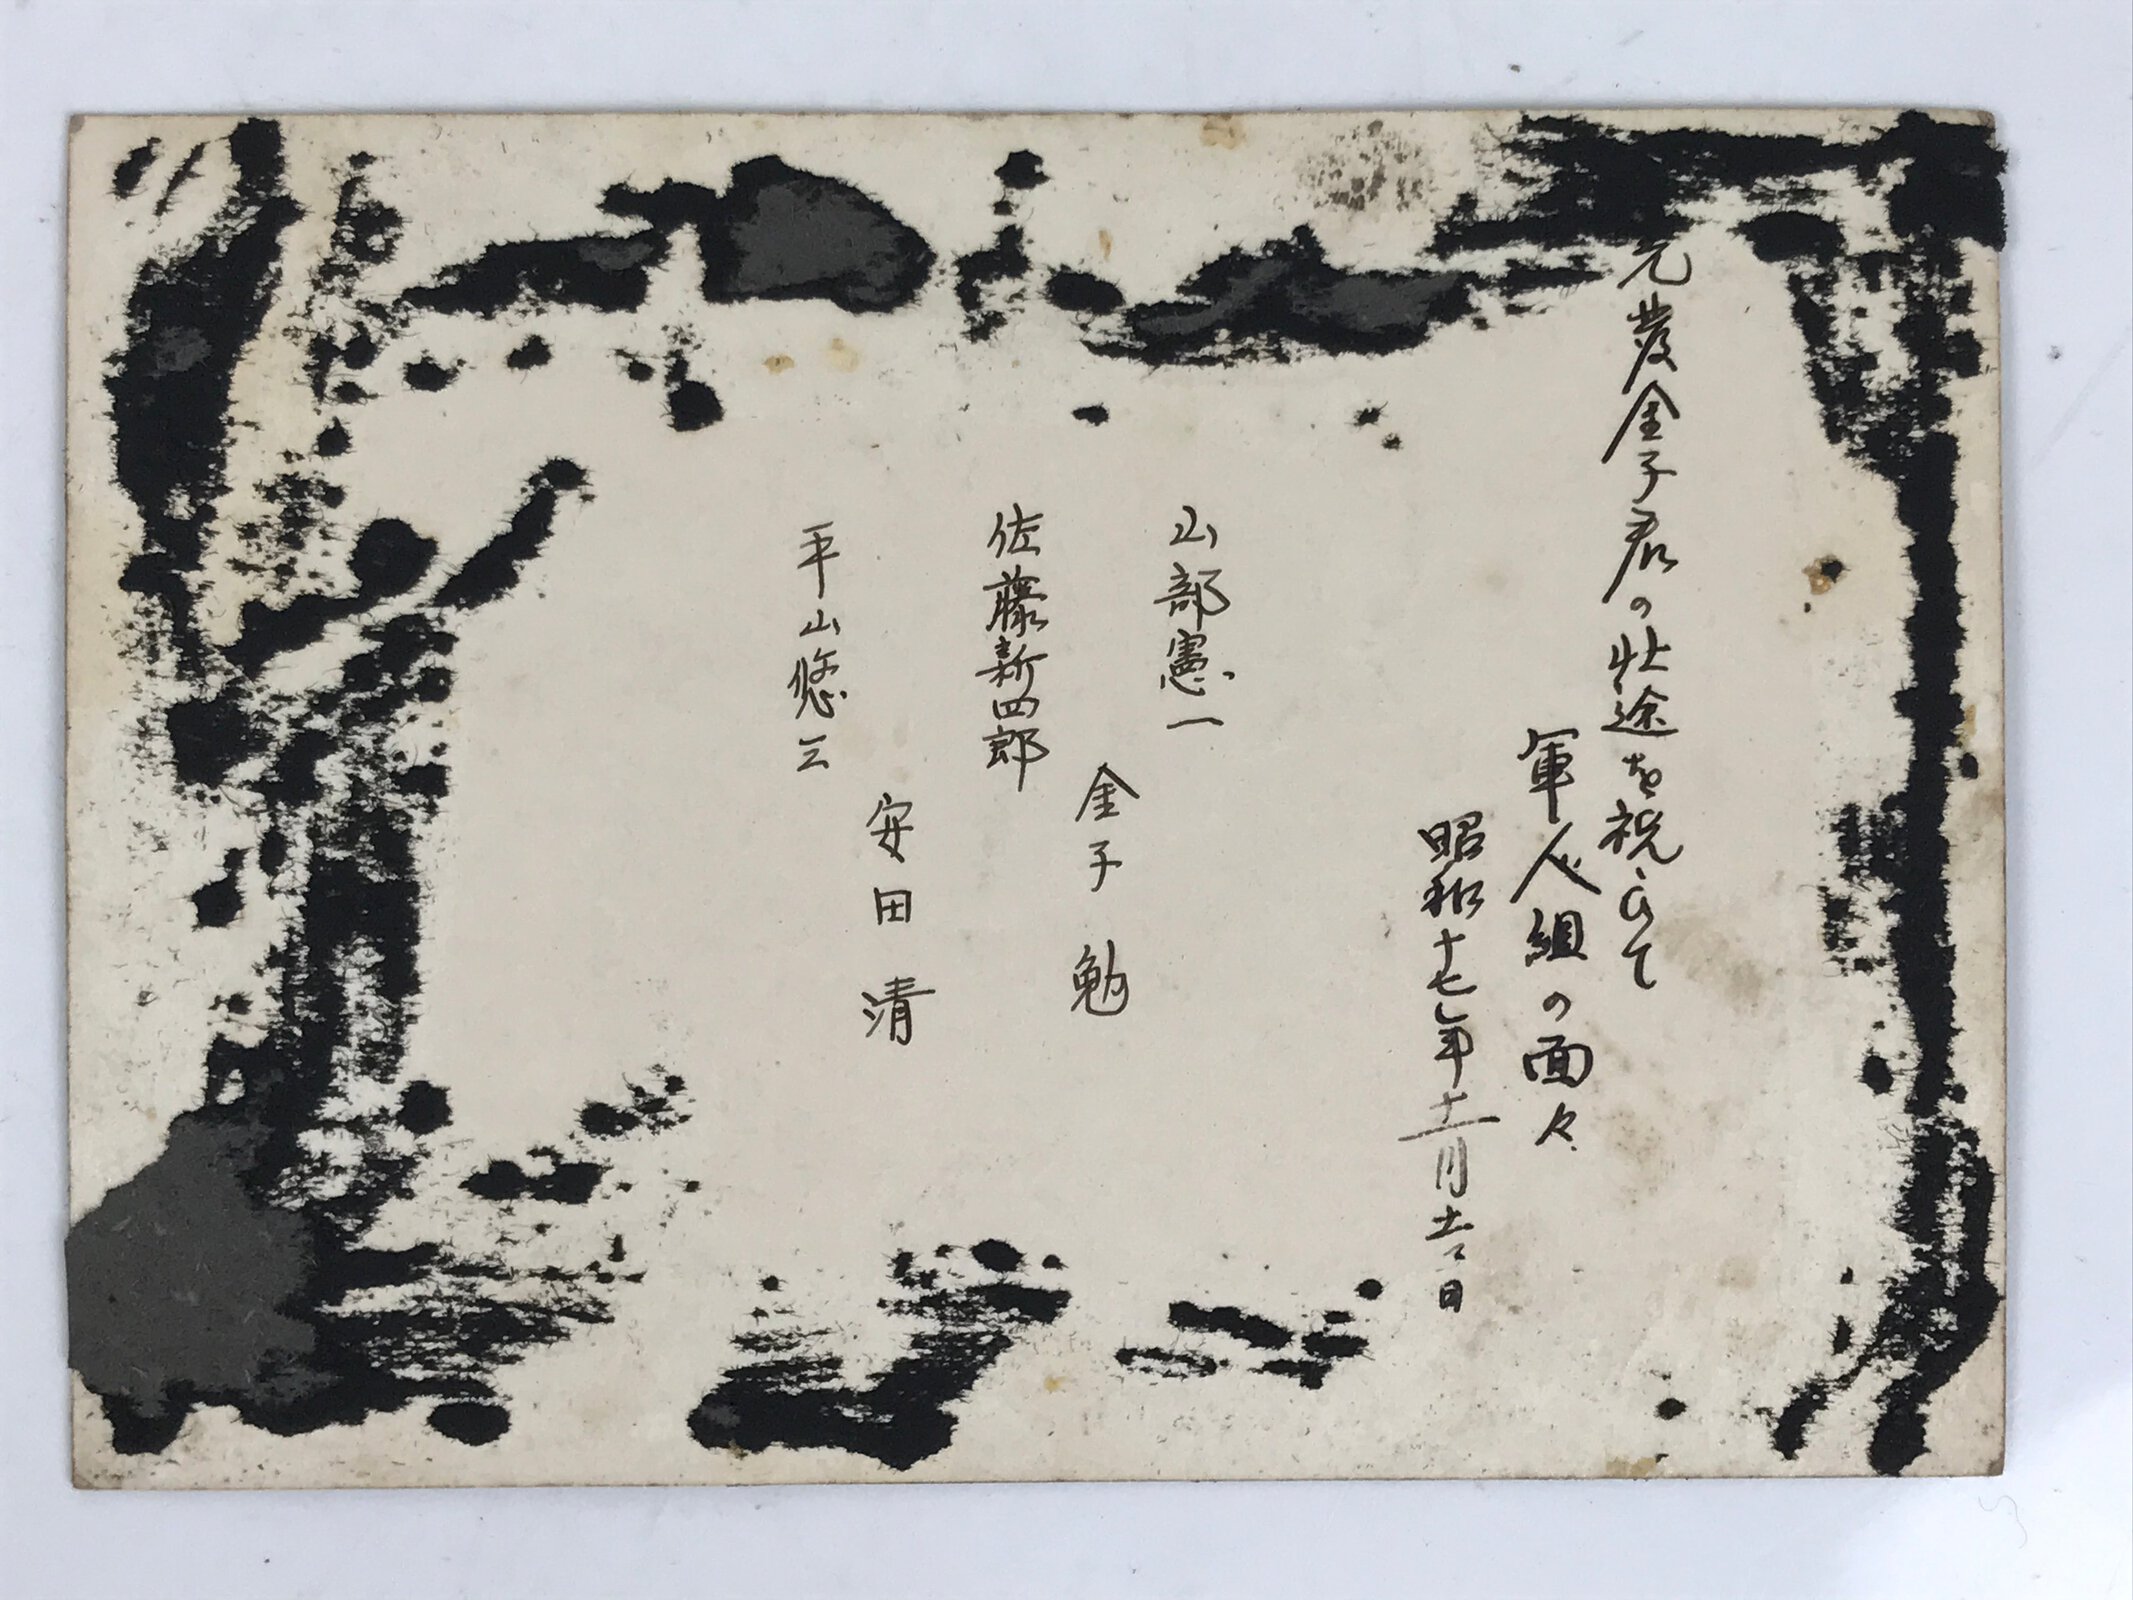 先發金子君の壮途を祝ひて
軍人組の面々
昭和十七年十二月十六日
山部憲一
金子勉
佐藤新四郎
安田清
平山悠三